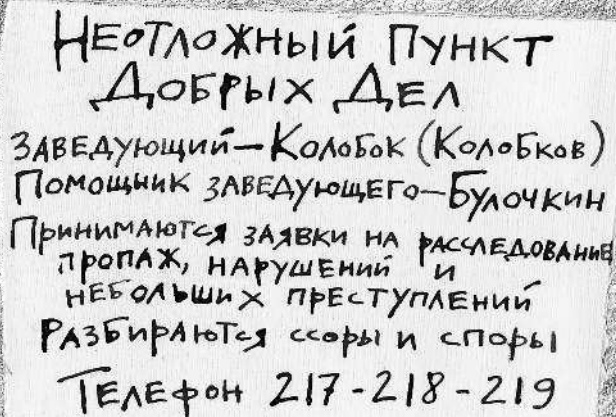 Неотложный Пункт
Добрых Дел
Заведующий — Колобок (Колобков)
Помощник заведующего — Булочкин
Принимаются заявки на расследование
пропаж, нарушений и
небольших преступлений
Разбираются ссоры и споры
Телефон 217-218-219